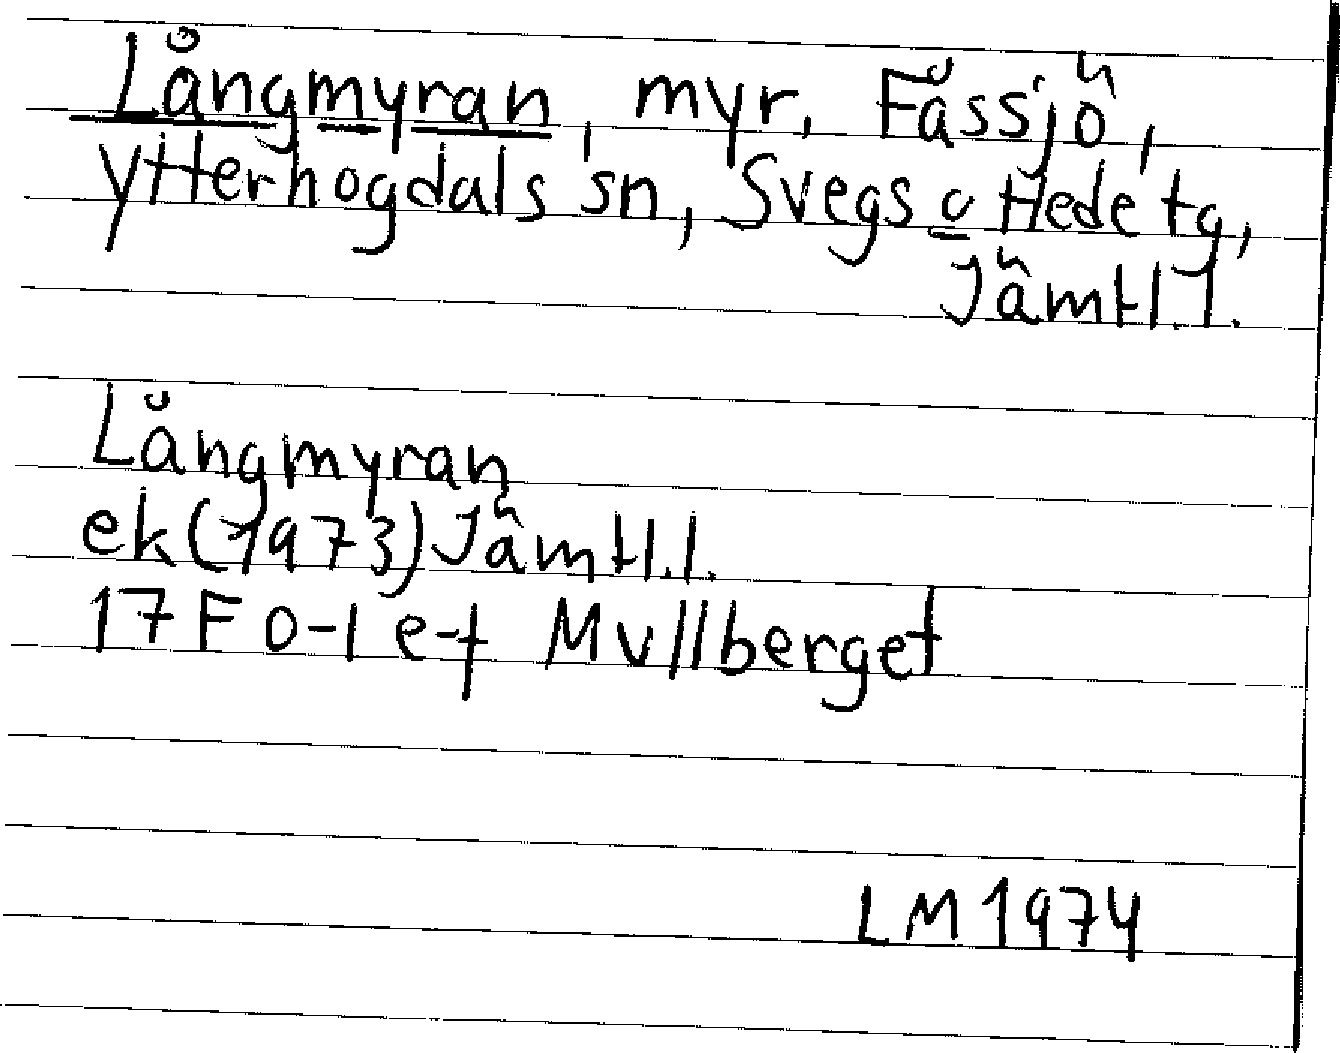 Långmyran, myr, Fåssjö,
Ytterhogdals sn, Svegs o Hede tg,
Jämtl.l.
Långmyran
ek (1973) Jämtl.l.
17F 0-1 e-f Mullberget
LM 1974